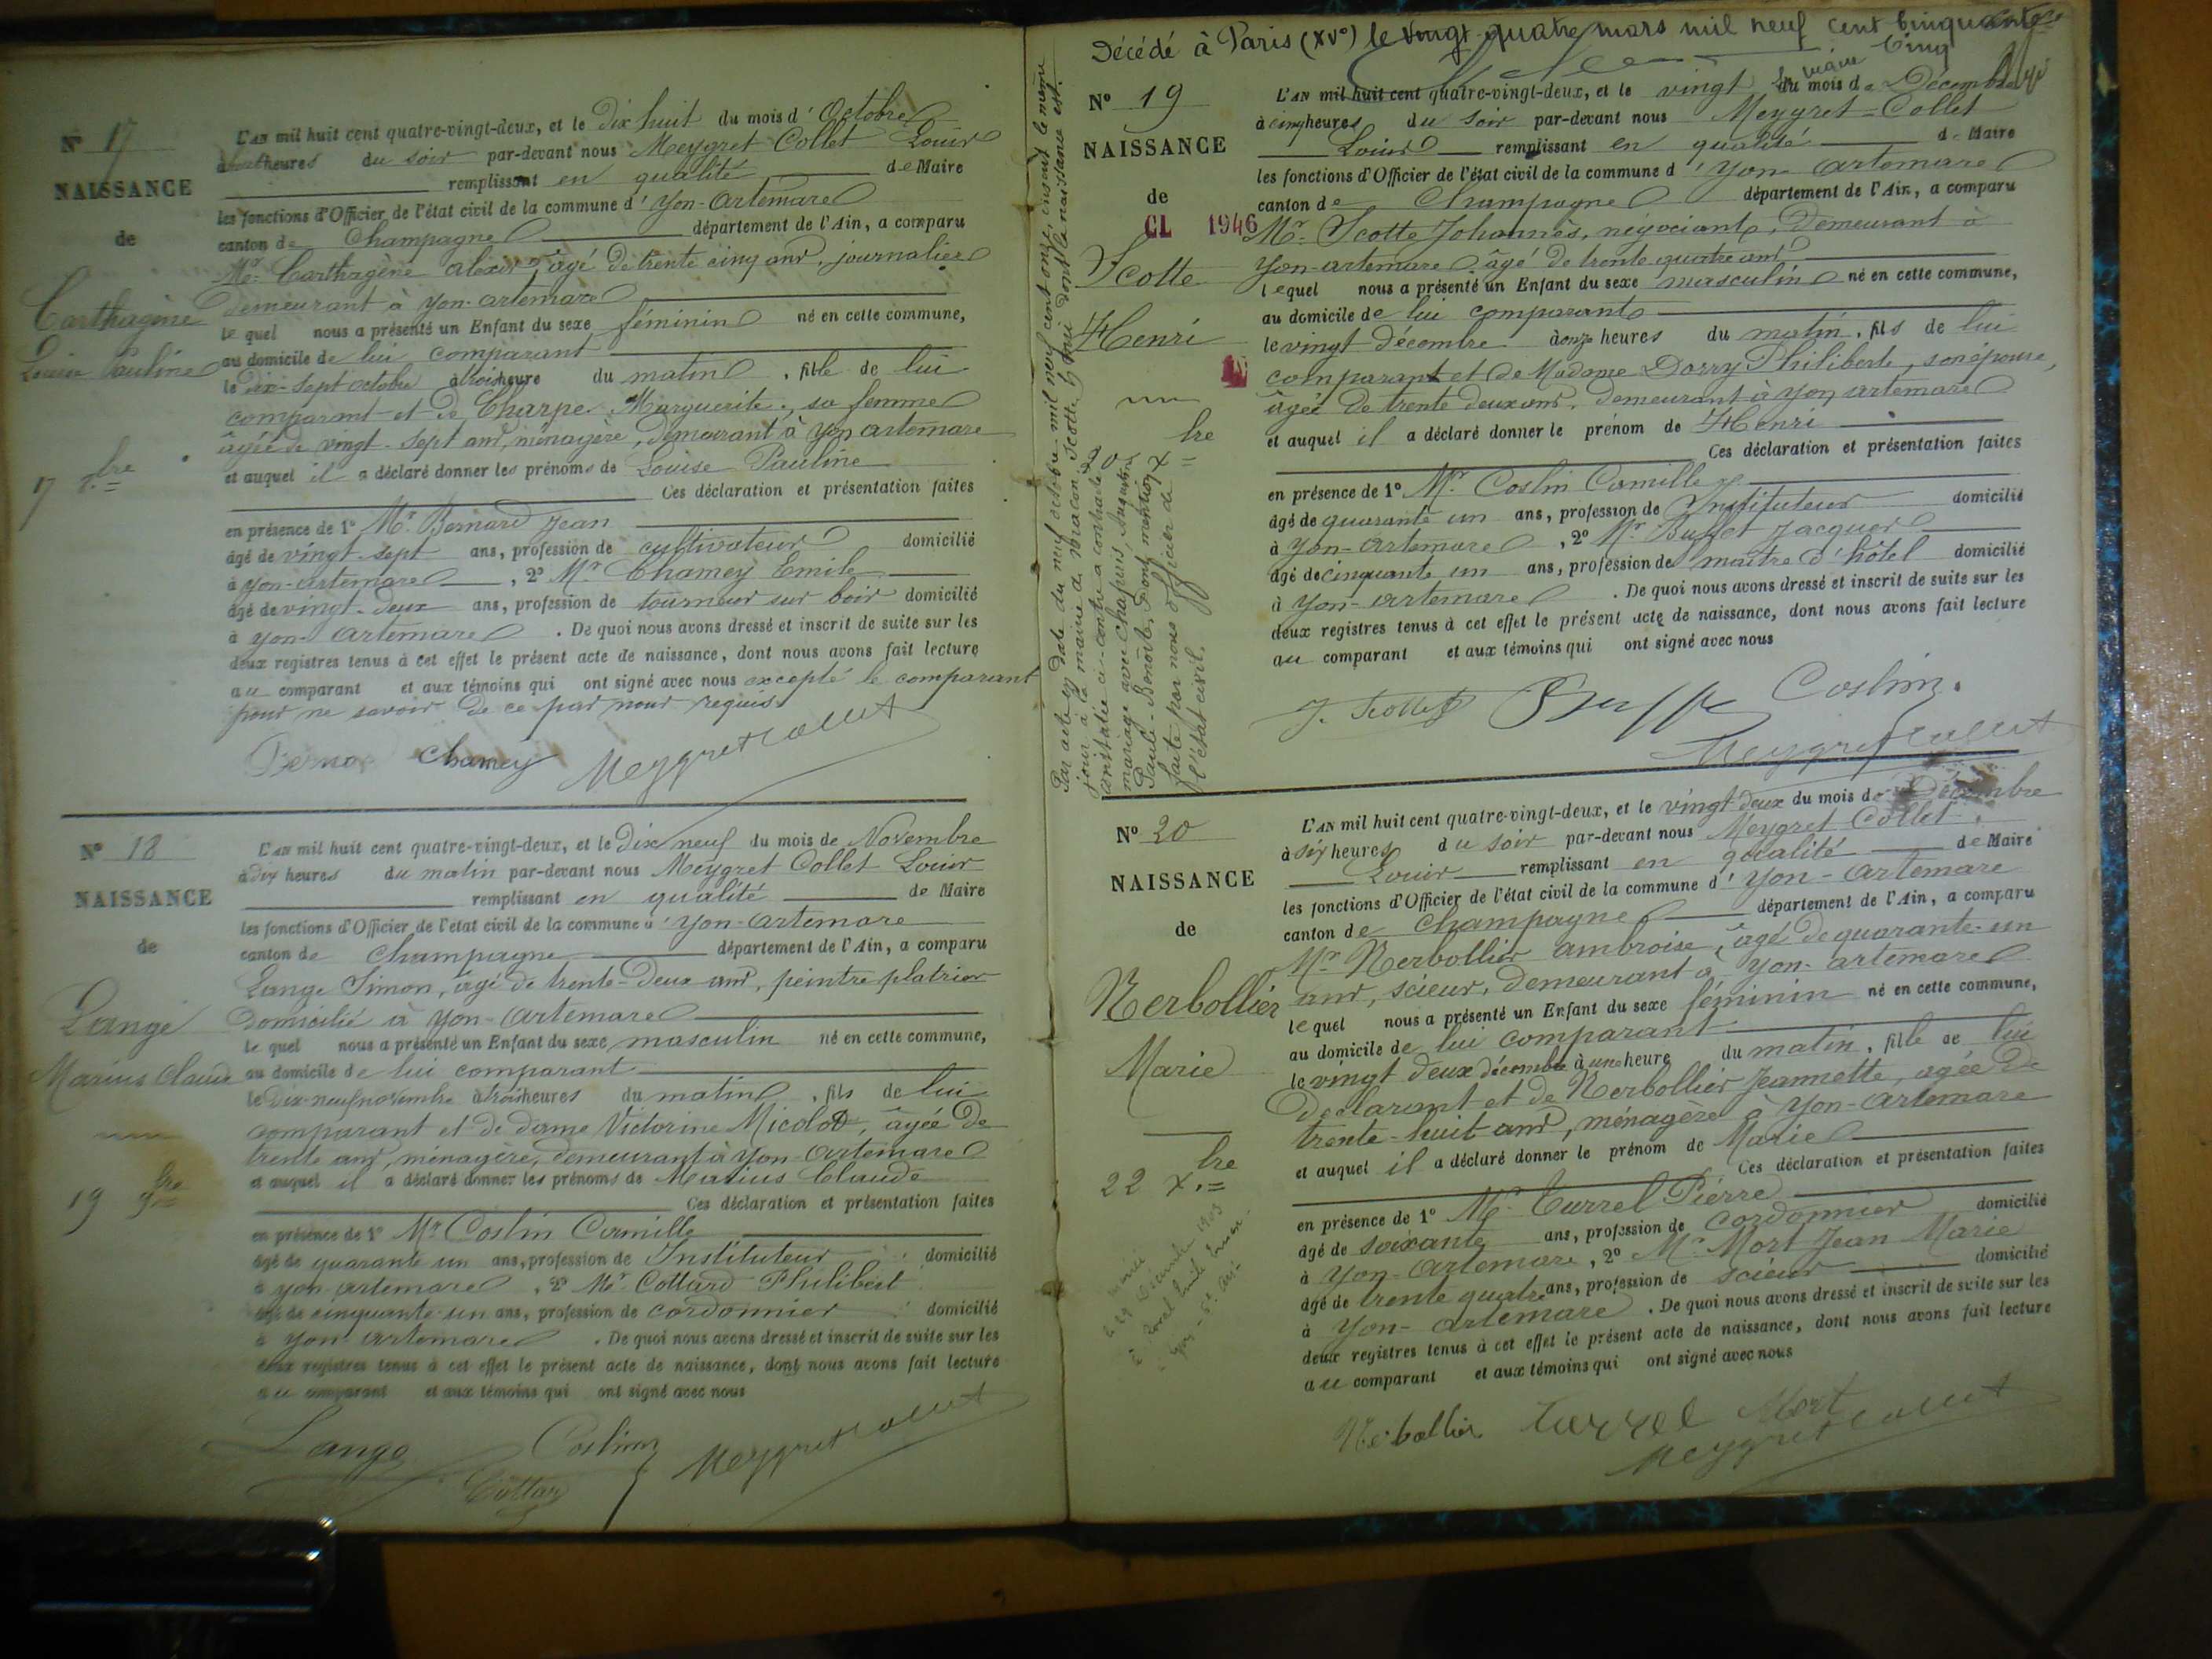 N° 17
NAISSANCE
de
Carthagène
Louise Pauline
17 8.bre
L'AN mil huit cent quatre-vingt-deux, et le dix huit du mois d'Octobre
à heures du soir par-devant nous Meygret Collet Louis
remplissant en qualité de Maire
les fonctions d'Officier de l'état civil de la commune d'Yon-Artemare
canton de Champagne département de l'Ain, a comparu
Mr. Carthagène Alexis, âgé de trente cinq ans, journalier
demeurant à Yon-artemare
lequel nous a présenté un Enfant du sexe féminin né en cette commune,
au domicile de lui comparant
le dix-sept octobre à trois heure du matin, fille de lui
comparant et de Charpe Marguerite, sa femme
âgée de vingt-sept ans, ménagère, demeurant à Yon artemare
et auquel il a déclaré donner les prénoms de Louise Pauline
Ces déclaration et présentation faites
en présence de 1° Mr Bernard Jean
âgé de vingt-sept ans, profession de cultivateur domicilié
à Yon-artemare, 2° Mr Chamey Emile
âgé de vingt-deux ans, profession de tourneur sur bois domicilié
à Yon-Artemare. De quoi nous avons dressé et inscrit de suite sur les
deux registres tenus à cet effet le présent acte de naissance, dont nous avons fait lecture
au comparant et aux témoins qui ont signé avec nous excepté le comparant
pour ne savoir de ce par nous requis
Bernard Chamey Meygret Collet
N° 18
NAISSANCE
de
Lange
Marius Claude
19 9bre
L'AN mil huit cent quatre-vingt-deux, et le Dix neuf du mois de Novembre
à dix heures du matin par-devant nous Meygret Collet Louis
remplissant en qualité de Maire
les fonctions d'Officier de l'état civil de la commune d'Yon-Artemare
canton de Champagne département de l'Ain, a comparu
Lange Simon, âgé de trente-deux ans, peintre platrier
domicilié à Yon-Artemare
lequel nous a présenté un Enfant du sexe masculin né en cette commune,
au domicile de lui comparant
le Dix-neuf novembre à trois heures du matin, fils de lui
comparant et de dame Victorine Micolod, âgée de
trente ans, ménagère, demeurant à Yon-Artemare
et auquel il a déclaré donner les prénoms de Marius Claude
Ces déclaration et présentation faites
en présence de 1° Mr Coslin Camille
âgé de quarante un ans, profession de Instituteur domicilié
à Yon artemare, 2° Mr. Cottard Philibert
âgé de cinquante-un ans, profession de cordonnier domicilié
à Yon artemare. De quoi nous avons dressé et inscrit de suite sur les
deux registres tenus à cet effet le présent acte de naissance, dont nous avons fait lecture
au comparant et aux témoins qui ont signé avec nous
Lange Coslin Meygret Collet
Cottard
Décédé à Paris (XVe) le vingt-quatre mars mil neuf cent cinquante
cinq
N° 19
NAISSANCE
de
CL 1946
Scotte
Henri
20 Xbre
Par acte en date du neuf octobre mil neuf cent onze, inscrit le même
jour à la mairie de Macon, Scotte Henri dont la naissance est
constatée ci-contre a contracté
mariage avec Chapuis, Augustine
Paule-Benoite, dont mention
faite par nous officier de
l'état civil.
L'AN mil huit cent quatre-vingt-deux, et le vingt du mois de Décembre
à cinq heures du soir par-devant nous Meygret-Collet
Louis remplissant en qualité de Maire
les fonctions d'Officier de l'état civil de la commune d'Yon-artemare
canton de Champagne département de l'Ain, a comparu
Mr. Scotte Johannès, négociant, demeurant à
Yon-artemare âgé de trente quatre ans
lequel nous a présenté un Enfant du sexe masculin né en cette commune,
au domicile de lui comparant
le vingt décembre à onze heures du matin, fils de lui
comparant et de Madame Dorry Philiberte, son épouse,
âgée de trente deux ans, demeurant à Yon artemare
et auquel il a déclaré donner le prénom de Henri
Ces déclaration et présentation faites
en présence de 1° Mr Coslin Camille
âgé de quarante un ans, profession de Instituteur domicilié
à Yon-Artemare, 2° Mr Buffet Jacques
âgé de cinquante un ans, profession de maître d'hôtel domicilié
à Yon-artemare. De quoi nous avons dressé et inscrit de suite sur les
deux registres tenus à cet effet le présent acte de naissance, dont nous avons fait lecture
au comparant et aux témoins qui ont signé avec nous
J. Scotte Buffet Coslin.
Meygret Collet
N° 20
NAISSANCE
de
Nerbollier
Marie
22 X.bre
L'AN mil huit cent quatre-vingt-deux, et le vingt deux du mois de Décembre
à six heures du soir par-devant nous Meygret Collet
Louis remplissant en qualité de Maire
les fonctions d'Officier de l'état civil de la commune d'Yon-Artemare
canton de Champagne département de l'Ain, a comparu
Mr Nerbollier Ambroise, âgé de quarante-un
ans, scieur, demeurant à Yon-artemare
lequel nous a présenté un Enfant du sexe féminin né en cette commune,
au domicile de lui comparant
le vingt deux décembre à une heure du matin, fille de lui
déclarant et de Nerbollier Jeannette, agée de
trente-huit ans, ménagère à Yon-Artemare
et auquel il a déclaré donner le prénom de Marie
Ces déclaration et présentation faites
en présence de 1° Mr. Turrel Pierre
âgé de soixante ans, profession de cordonnier domicilié
à Yon-Artemare, 2° Mr Mort Jean Marie
âgé de trente quatre ans, profession de scieur domicilié
à Yon-Artemare. De quoi nous avons dressé et inscrit de suite sur les
deux registres tenus à cet effet le présent acte de naissance, dont nous avons fait lecture
au comparant et aux témoins qui ont signé avec nous
Nerbollier Turrel Mort
Meygret Collet